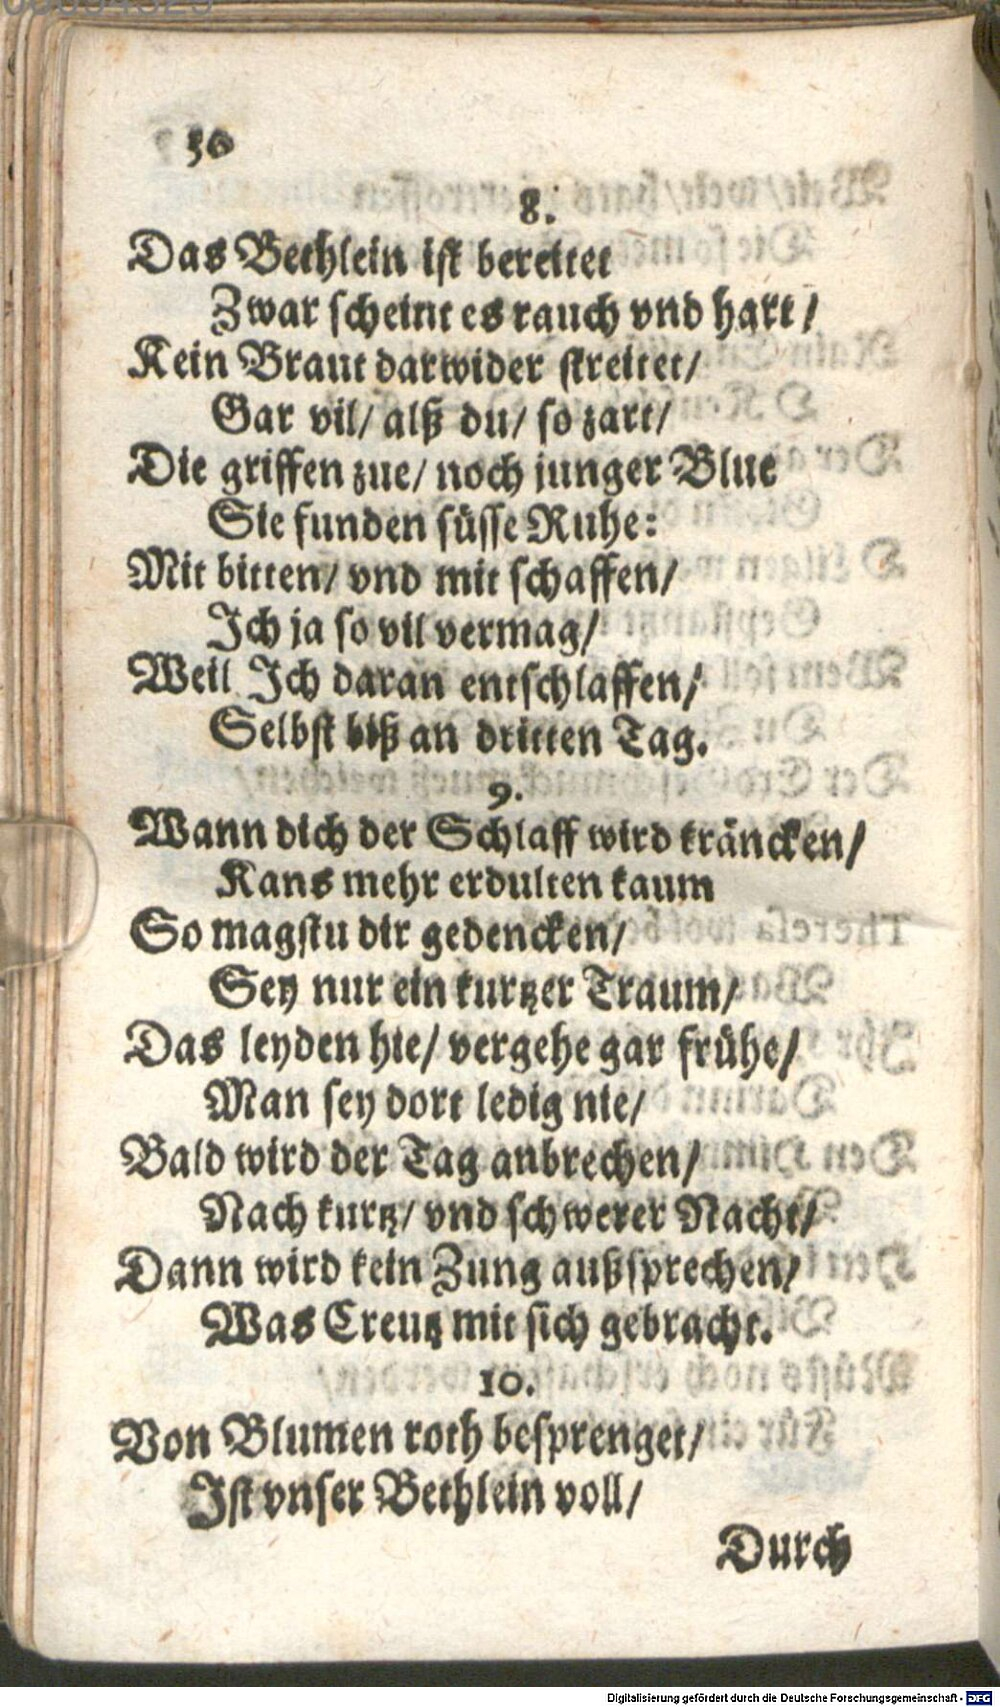 50
8.
Das Bethlein ist bereitet
Zwar scheint es rauch vnd hart/
Kein Braut darwider streitet/
Gar vil/ alß du/ so zart/
Die griffen zue/ noch junger Blue
Sie funden süsse Ruhe:
Mit bitten/ vnd mit schaffen/
Ich ja so vil vermag/
Weil Ich daran entschlaffen/
Selbst biß an dritten Tag.
9.
Wann dich der Schlaff wird kräncken/
Kans mehr erdulten kaum
So magstu dir gedencken/
Sey nur ein kurtzer Traum/
Das leyden hie/ vergehe gar frühe/
Man sey dort ledig nie/
Bald wird der Tag anbrechen/
Nach kurtz/ vnd schwerer Nacht/
Dann wird kein Zung außsprechen/
Was Creutz mit sich gebracht.
10.
Von Blumen roth besprenget/
Ist vnser Bethlein voll/
Durch
Digitalisierung gefördert durch die Deutsche Forschungsgemeinschaft - DFG